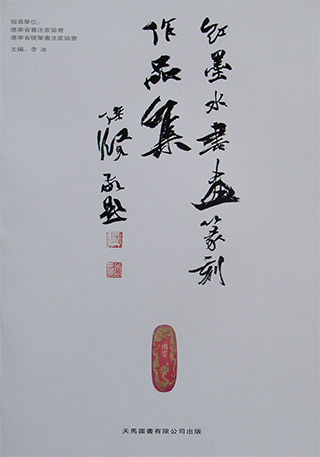 指導單位：
遼寧省書法家協會
遼寧省硬筆書法家協會
主編：李冰
紅墨水書畫篆刻
作品集
敬題
天馬圖書有限公司出版